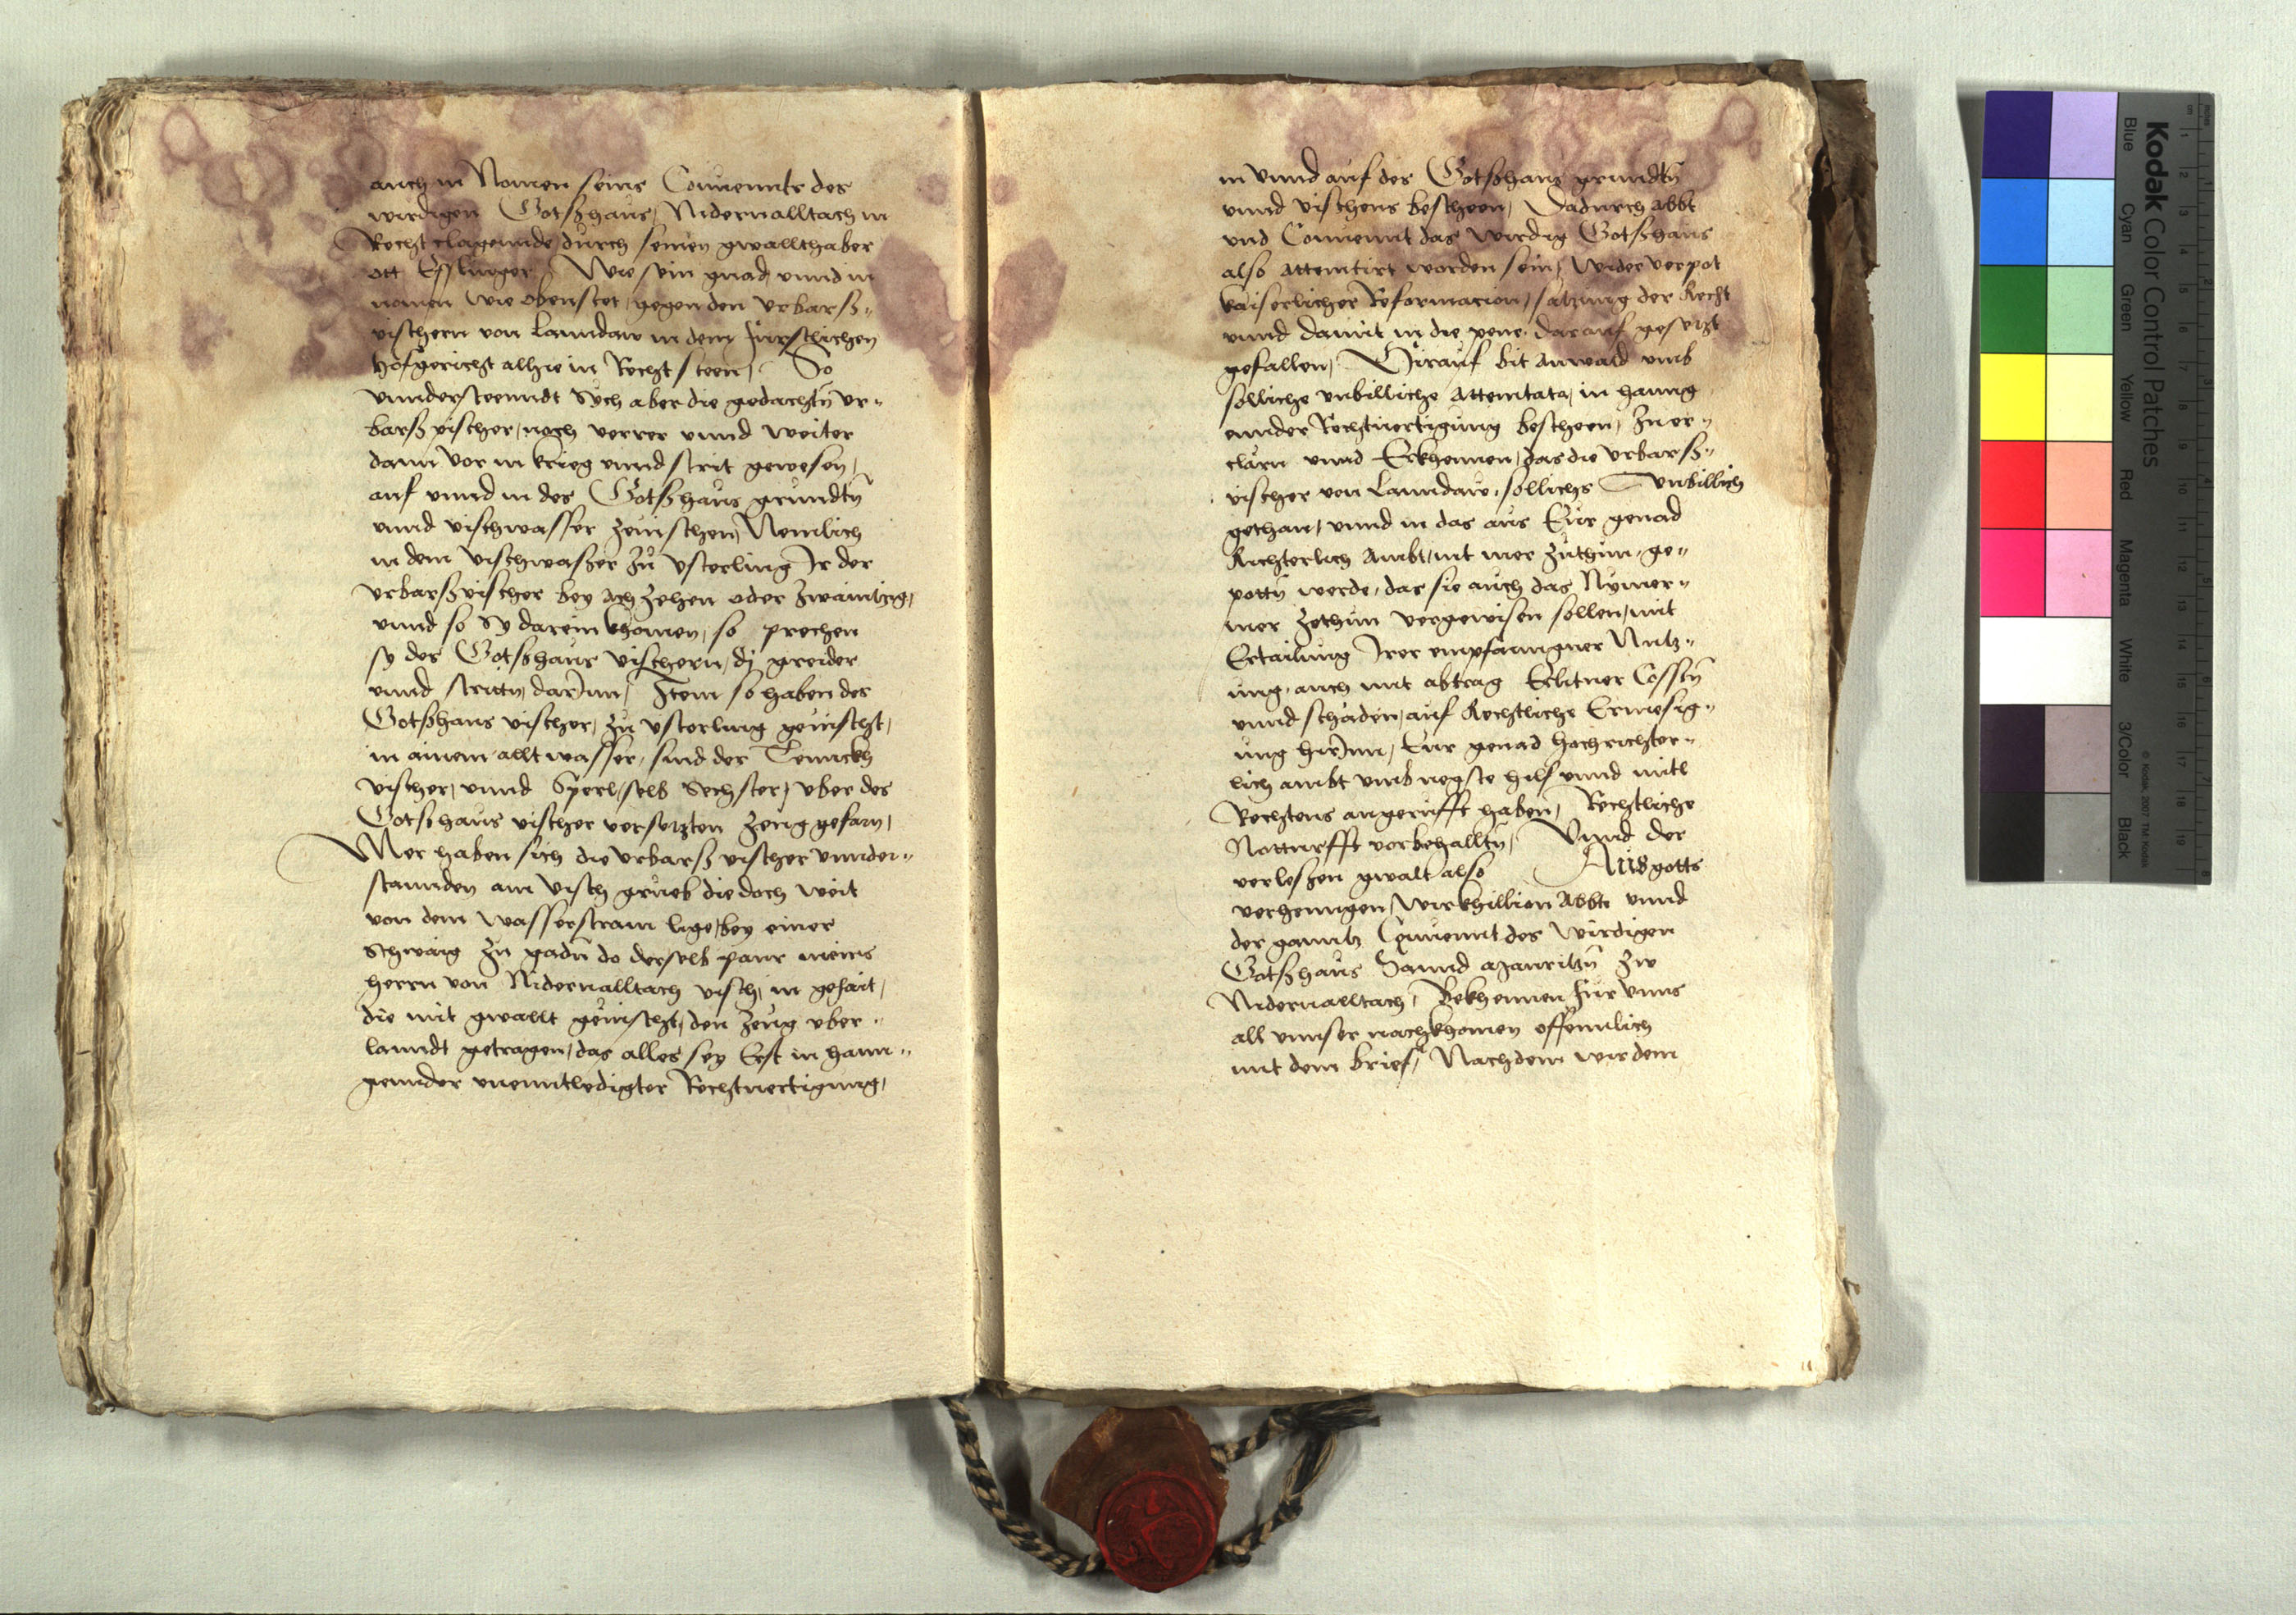 auch in Namen seins Conuennts des
wirdigen Gotßhaus, Nidernalltach in
Recht clagennde, durch seinen gwallthaber
ott Esslinger, Wie sein gnad vnnd in
namen wie obenstet, gegen den vrbarß-
vischern von Lanndaw in dem fürstlichen
hofgericht allhie in Recht steen, So
vnndersteenndt sych aber die gedachtn̄ vr-
barß vischer, noch verrer vnnd weiter
dann vor in krieg vnnd strit gewesen,
auf vnnd in des Gotßhaus grundtn̄
vnnd vischwasser zeuischen, Nemlich
in dem vischwaßer zu vsterling Ir der
vrbarßvischer bey achzehen oder zwaintzig,
vnnd so sy darein khomen, so prechen
sy des Gotßhaus vischern, dj greider
vnnd strittn, darJnn, Item so haben des
Gotßhaus vischer, zu vsterling geuischt,
in ainem alltwasser, sind der Tennckh
vischer, vnnd Sperl, selb Sechster, vber des
Gotßhaus vischer versetzten zeug gefarn,
Mer haben sich die vrbarß vischer vnnder-
stannden am visch grueb die doch weit
von dem wasserstram lige, bey einer
Schwaig zu gadn̄ do derselb paur meins
herrn von Nidernalltach visch, in gehait,
die mit gwallt geuischt, den zeug vber-
lanndt getragen, das alles sey Erst in hann-
gennder vnenntledigter Rechtuertigung,
in vnnd auf des Gotßhaus grundtn̄
vnnd vischens bescheen, Dadurch abbt
vnd Conuennt das wirdig Gotßhaus
also attemtirt worden sein, wider verpot
kaiserlicher Reformacion, satzung der Recht
vnnd damit in die pene darauf gesetzt
gefallen, Hirauf bit anwald vmb
solliche vnbilliche attemtata, in hanng
ennder Rechtuertigung bescheen, zuer-
clärn vnnd Erkhennen, das die vrbarß-
vischer von Lanndaw, sollichs vnbillich
gethan, vnnd in das aus Eur genad
Richterlich Ambt, nit mer zuthun, ge-
pottn̄ werde, das sie auch das Nymer-
mer zethun vergewisen sollen, mit
Ertailung Irer empfanngner Nutz-
ung, auch mit abtrag Erlitner Costn̄
vnnd schaden, auf Rechtliche Ermesig-
ung hirJnn, Eur genad hochrichter-
lich ambt vmb negste hilf vnnd mitl
Rechtens angerufft haben, Rechtliche
Notturfft vorbehalltn̄, Vnnd der
verleßen gwalt also Aus gotts
verhenngen, wir khillion Abbt vnnd
der ganntz Conuennt des wirdigen
Gotßhaus Sannd Mauritzn̄ zw
Nidernalltach, Bekhennen für vnns
all vnnser nachkhomen offennlich
mit dem brief, Nachdem wir dem
Kodak Color Control Patches
© Kodak, 2007 TM: Kodak
Blue
Cyan
Green
Yellow
Red
Magenta
White
3/Color
Black